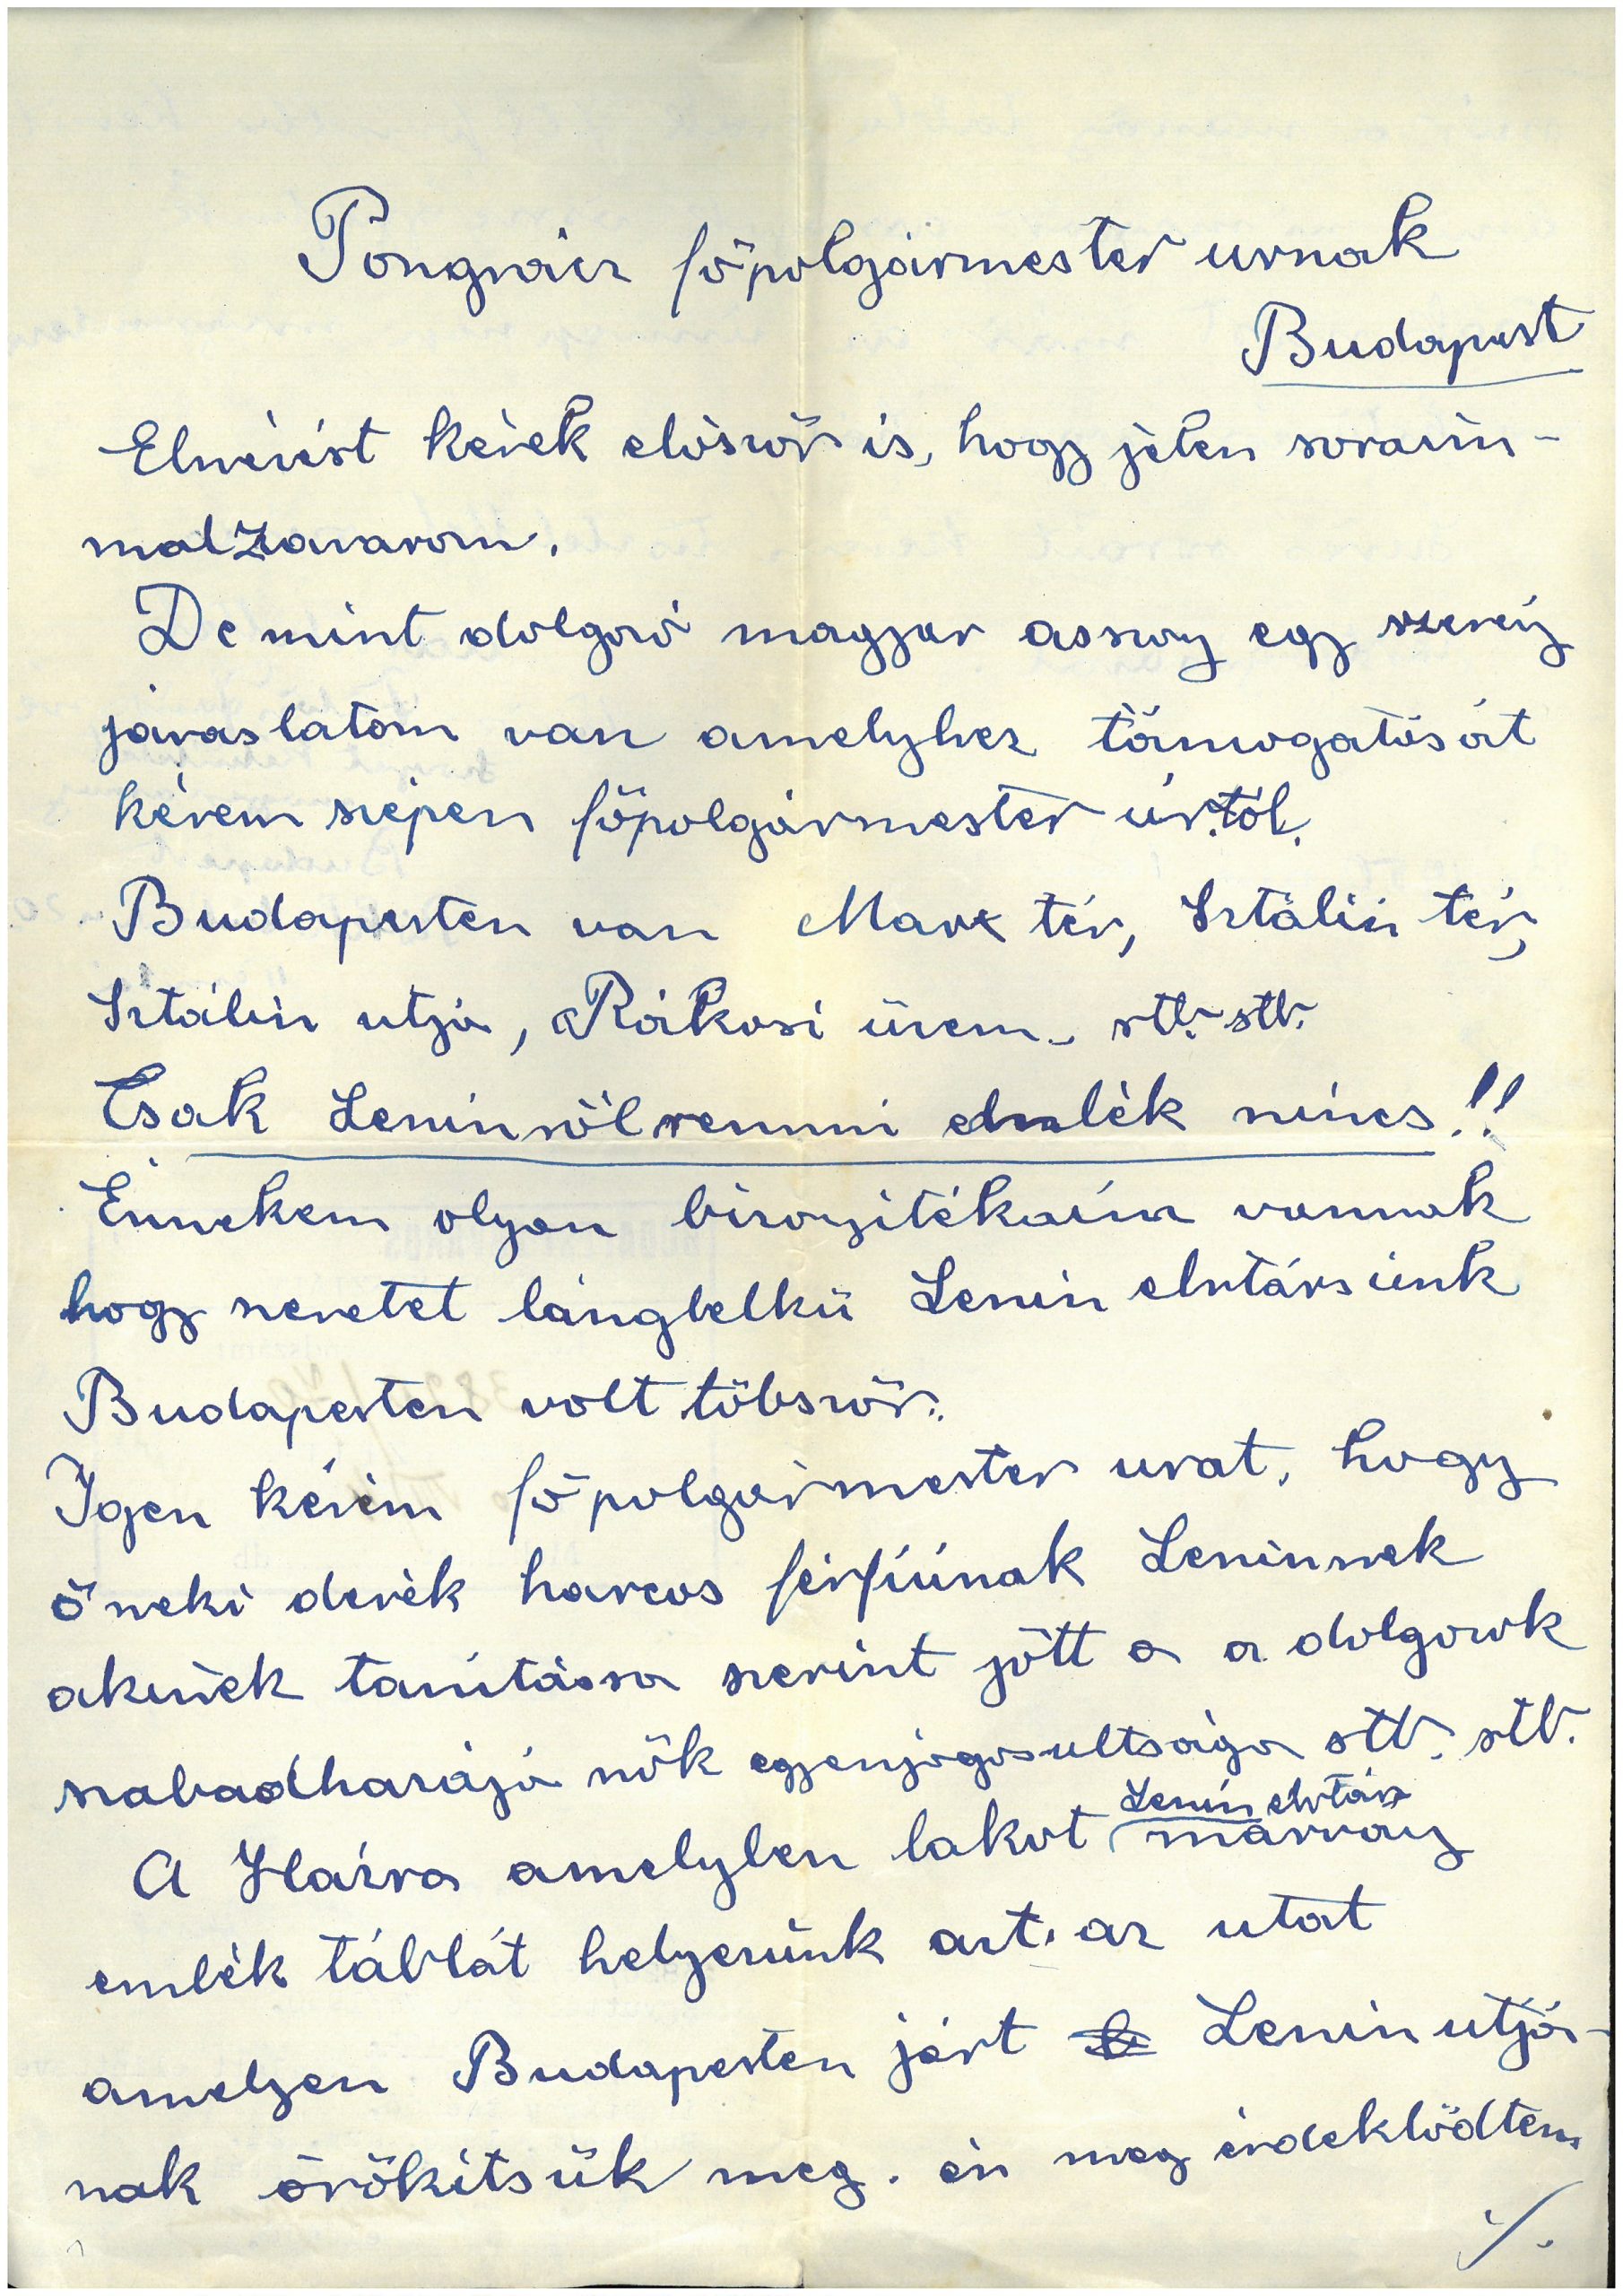 Pongrácz főpolgármester urnak
Budapest
Elnézést kérek elöször is, hogy jelen soraim-
mal zavarom.
De mint dolgozó magyar asszony egy szerény
javaslatom van amelyhez támogatását
kérem szépen főpolgármester úr.tól.
Budapesten van Marx tér, Sztálin tér,
Sztálin utja, Rákosi üzem, stb. stb.
Csak Leninröl semmi emlék nincs!!
Énnekem olyan bizonyitékaim vannak
hogy szeretet lánglelkü Lenin elvtársunk
Budapesten volt többször.
Igen kérem főpolgármester urat, hogy
őneki derék harcos férfiúnak Leninnek
akinek tanítássa szerint jött a a dolgozok
szabadhazája nők egyenjogosultsága stb. stb.
A Házra amelyben lakot Lenin elvtárs márvány
emlék táblát helyezünk azt. az utat
amelyen Budapesten járt Lenin utjá-
nak örökitsük meg. én meg érdeklödtem
./.